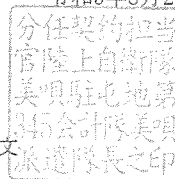 分任契約担当
官陸上自衛隊
美唄駐屯地第
345会計隊美唄
派遣隊長之印
文